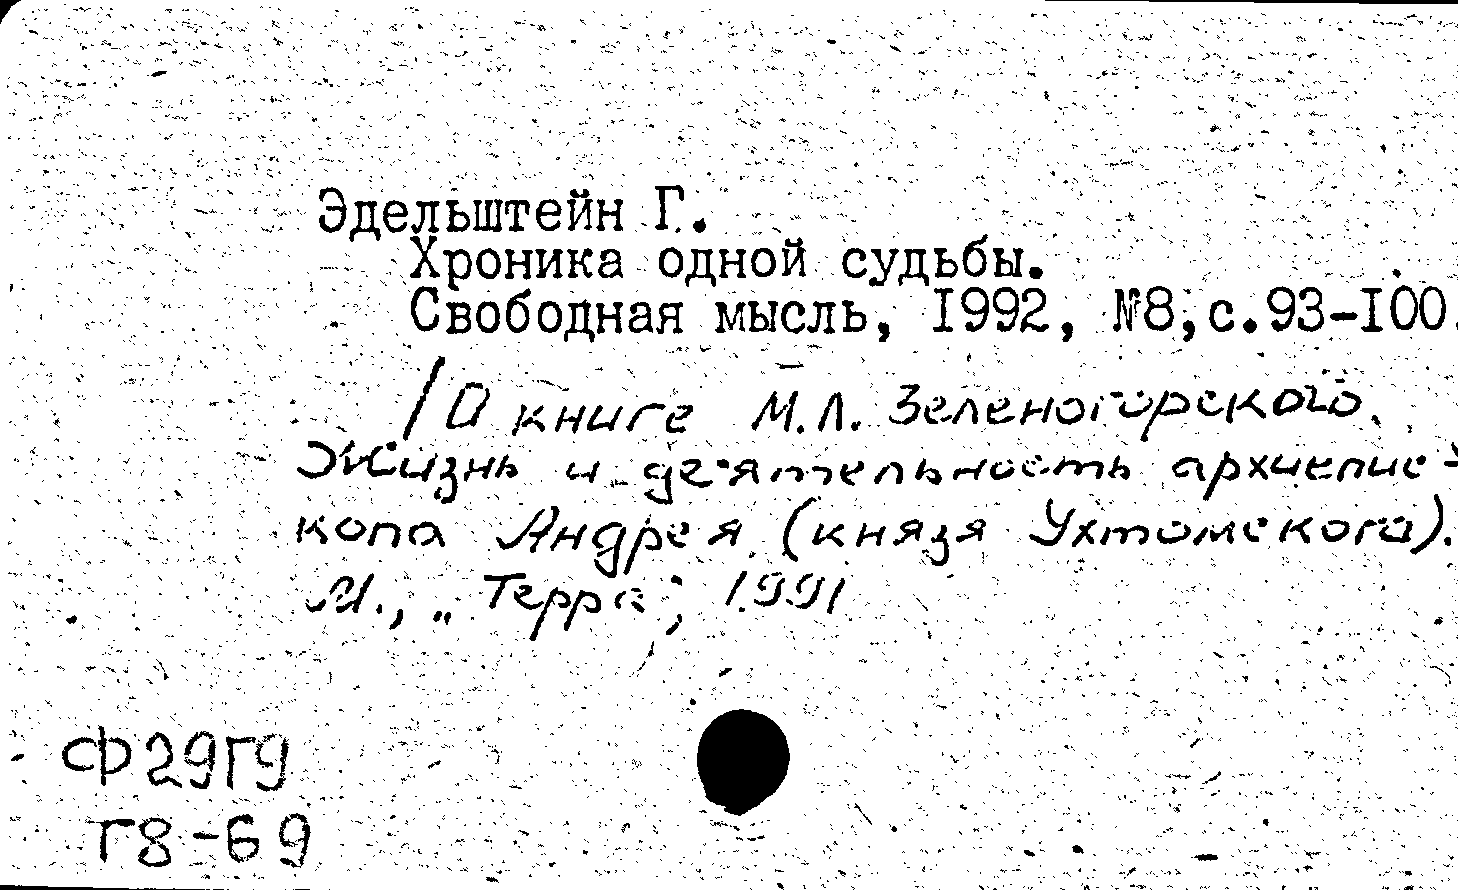 Эдельштейн Г.
Хроника одной судьбы.
Свободная мысль, I992, №8,с.93-I00.
/О книге М.Л. Зеленогорского.
Жизнь и деятельность архиепис-
копа Андрея (князя Ухтомского).
М., „Терра", 1991
Ф29Г9
Г8-69